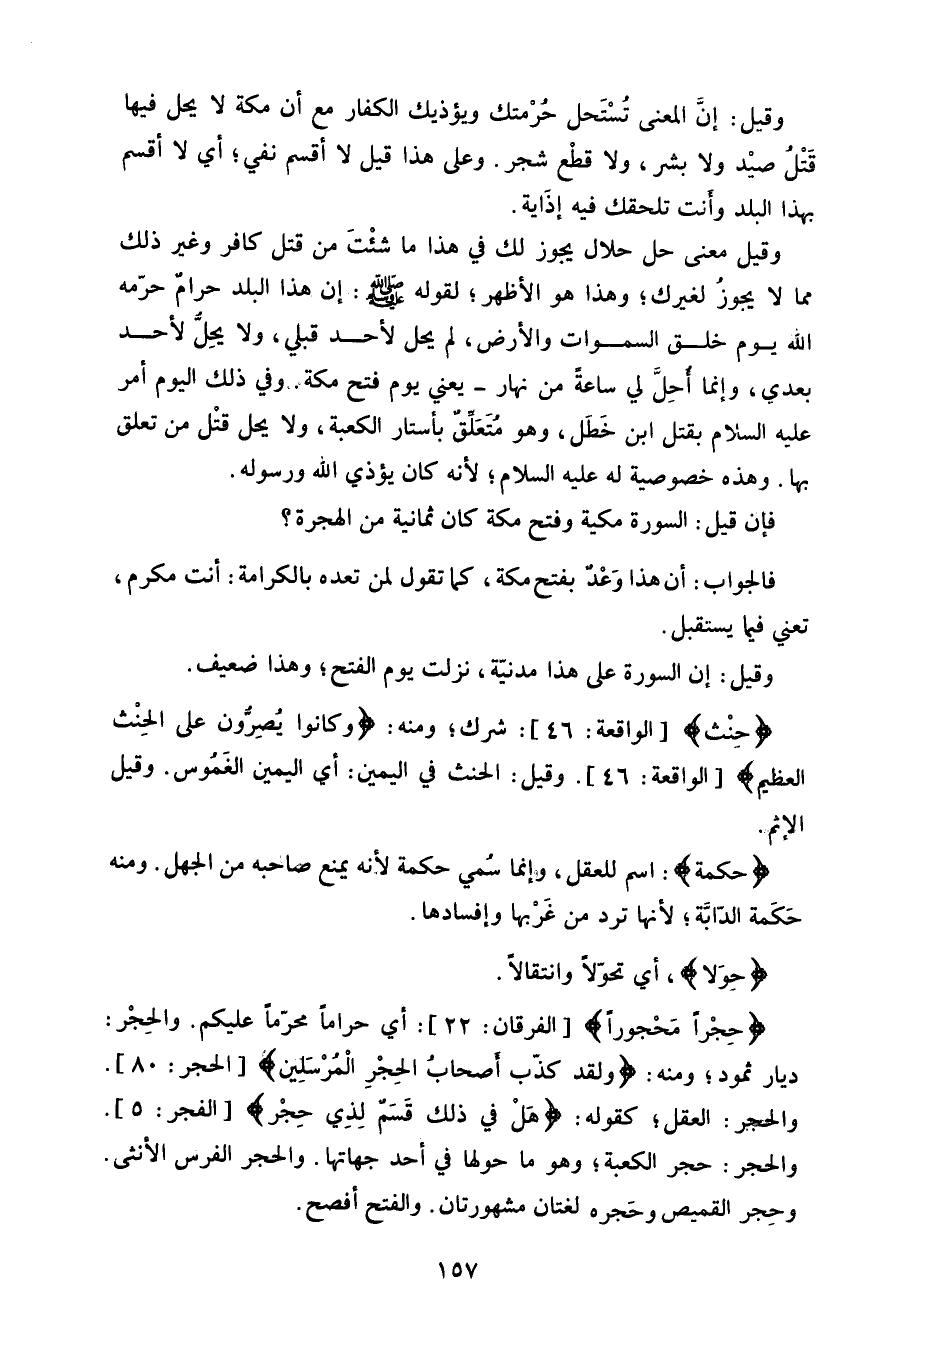 وقيل: إنَّ المعنى تُسْتَحل حُرْمتك ويؤذيك الكفار مع أن مكة لا يحل فيها
قَتْلُ صيْد ولا بشر، ولا قطْع شجر. وعلى هذا قيل لا أقسم نفي؛ أي لا أقسم
بهذا البلد وأَنت تلحقك فيه إذَاية.
وقيل معنى حل حلال يجوز لك في هذا ما شئْتَ من قتل كافر وغير ذلك
مما لا يجوزُ لغيرك؛ وهذا هو الأظهر؛ لقوله ﷺ: إن هذا البلد حرامٌ حرّمه
الله يوم خلق السموات والأرض، لم يحل لأحد قبلي، ولا يحِلُّ لأحد
بعدي، وإنما أُحِلَّ لي ساعةً من نهار - يعني يوم فتح مكة. وفي ذلك اليوم أمر
عليه السلام بقتل ابن خَطَل، وهو مُتَعَلِّقٌ بأستار الكعبة، ولا يحل قتْل من تعلق
بها. وهذه خصوصية له عليه السلام؛ لأنه كان يؤذي الله ورسوله.
فإن قيل: السورة مكية وفتح مكة كان ثمانية من الهجرة؟
فالجواب: أن هذا وَعْدٌ بفتح مكة، كما تقول لمن تعده بالكرامة: أنت مكرم،
تعني فيما يستقبل.
وقيل: إن السورة على هذا مدنيّة، نزلت يوم الفتح؛ وهذا ضعيف.
﴿حِنْث﴾ [الواقعة: ٤٦]: شرك؛ ومنه: ﴿وكانوا يُصِرُّون على الحِنْث
العظيم﴾ [الواقعة: ٤٦]. وقيل: الحنث في اليمين: أي اليمين الغَمُوس. وقيل
الإثم.
﴿حكمة﴾: اسم للعقل، وإنما سُمي حكمة لأنه يمنع صاحبه من الجهل. ومنه
حَكَمة الدّابَّة؛ لأنها ترد من غَرْبها وإفسادها.
﴿حِوَلا﴾، أي تحوّلاً وانتقالاً.
﴿حِجْراً مَحْجوراً﴾ [الفرقان: ٢٢]: أي حراماً محرّماً عليكم. والحِجْر:
ديار ثمود؛ ومنه: ﴿ولقد كذّب أَصحابُ الحِجْرِ الْمُرْسَلِين﴾ [الحجر: ٨٠].
والحجر: العقل؛ كقوله: ﴿هَلْ في ذلك قَسَمٌ لِذِي حِجْر﴾ [الفجر: ٥].
والحجر: حجر الكعبة؛ وهو ما حولها في أحد جهاتها. والحجر الفرس الأنثى.
وحِجر القميص وحَجره لغتان مشهورتان. والفتح أفصح.
١٥٧